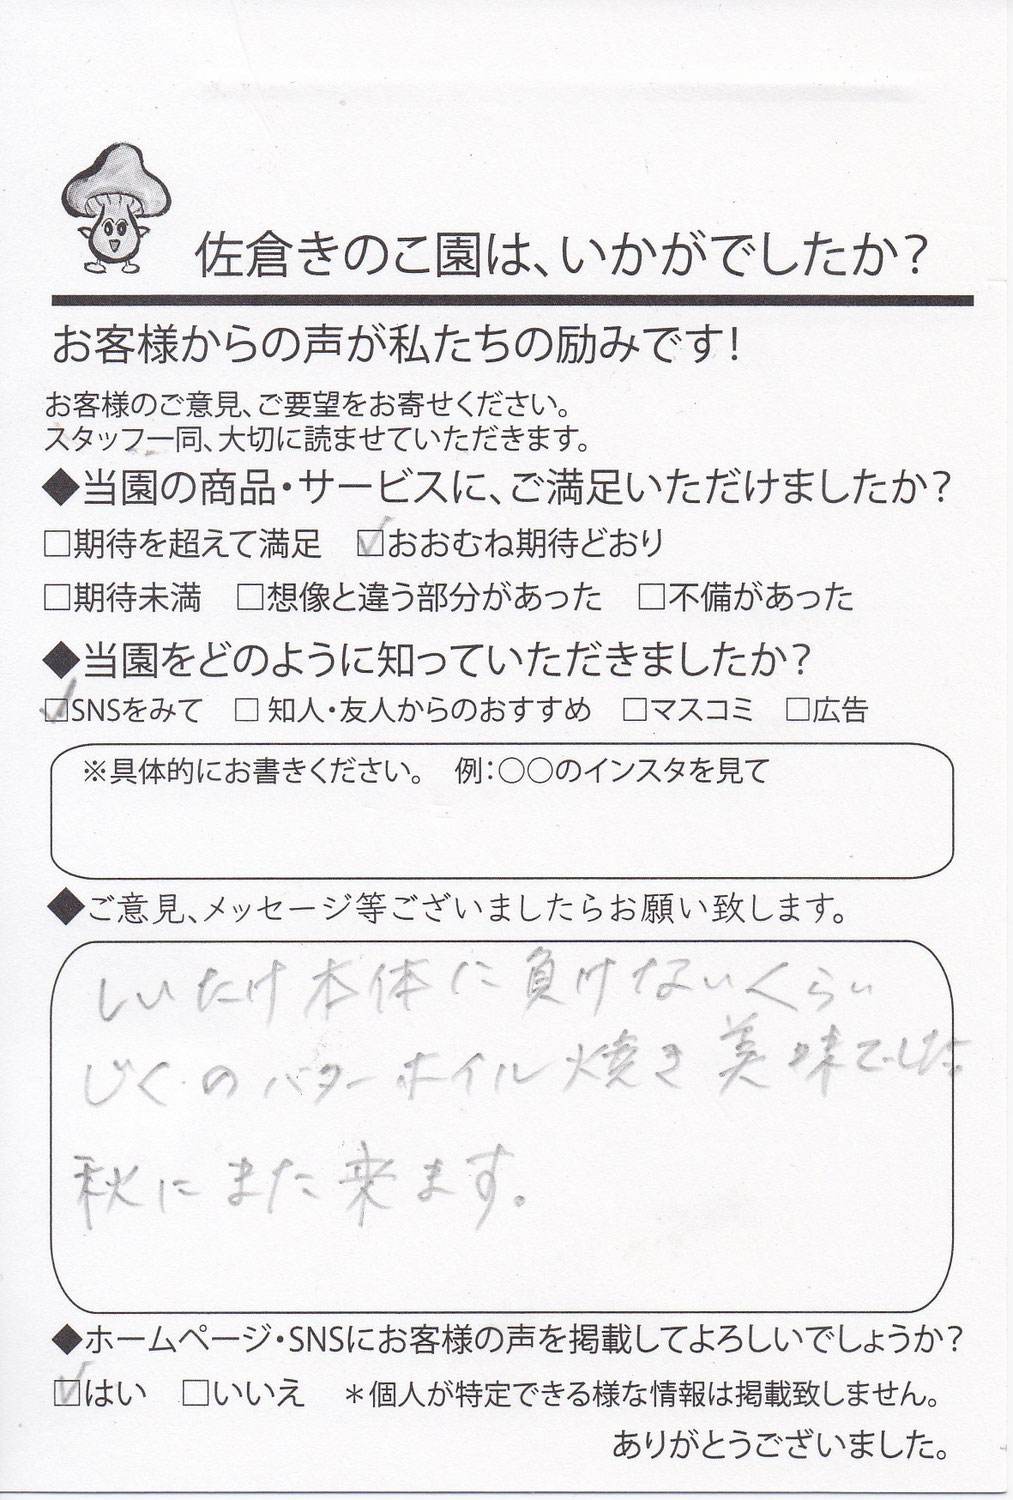 佐倉きのこ園は、いかがでしたか？
お客様からの声が私たちの励みです！
お客様のご意見、ご要望をお寄せください。
スタッフ一同、大切に読ませていただきます。
◆当園の商品・サービスに、ご満足いただけましたか？
□期待を超えて満足 ☑おおむね期待どおり
□期待未満 □想像と違う部分があった □不備があった
◆当園をどのように知っていただきましたか？
☑SNSをみて □ 知人・友人からのおすすめ □マスコミ □広告
※具体的にお書きください。 例：○○のインスタを見て
◆ご意見、メッセージ等ございましたらお願い致します。
しいたけ本体に負けないくらい
じくのバターホイル焼き美味でした。
秋にまた来ます。
◆ホームページ・SNSにお客様の声を掲載してよろしいでしょうか？
☑はい □いいえ ＊個人が特定できる様な情報は掲載致しません。
ありがとうございました。